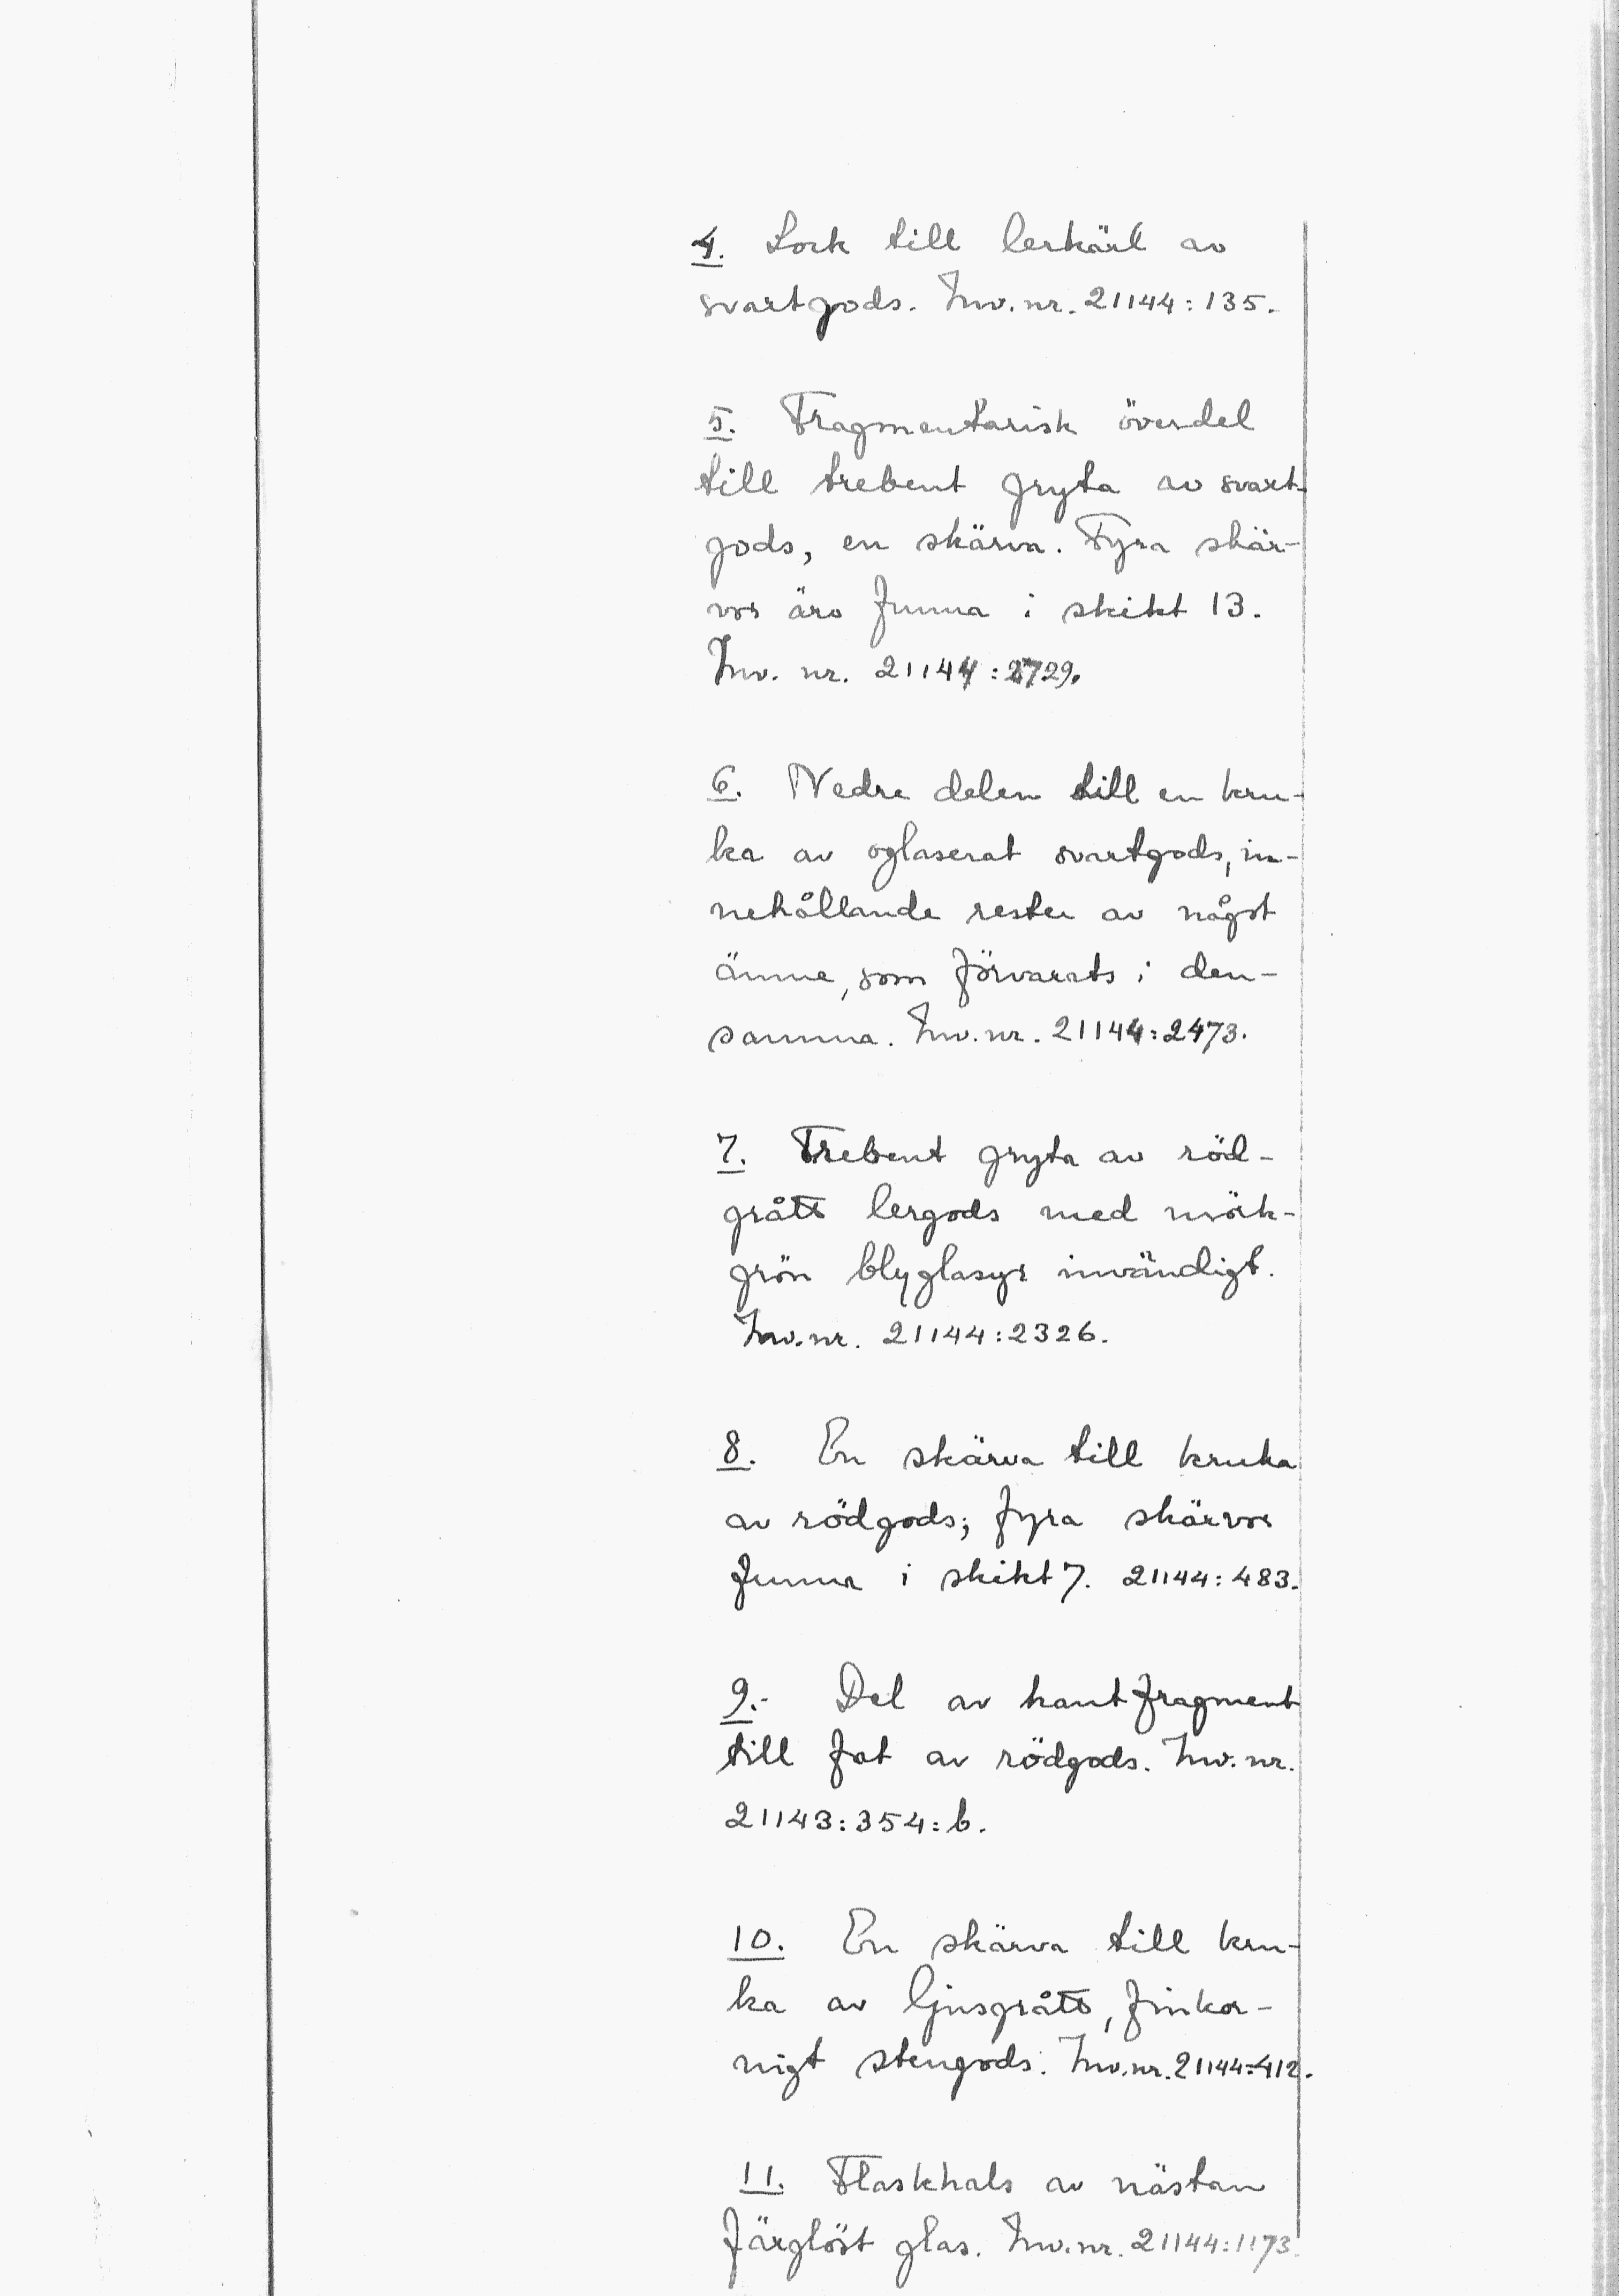 4. Lock till lerkärl av
svartgods. Inv. nr. 21144:135.
5. Fragmentarisk överdel
till trebent gryta av svart-
gods, en skärva. Fyra skär-
vor äro funna i skikt 13.
Inv. nr. 21144:2729.
6. Nedre delen till en kru-
ka av oglaserat svartgods, in-
nehållande rester av något
ämne, som förvarats i den-
samma. Inv. nr. 21144:2473.
7. Trebent gryta av röd-
grått lergods med mörk-
grön blyglasyr invändigt.
Inv. nr. 21144:2326.
8. En skärva till kruka
av rödgods; fyra skärvor
funna i skikt 7. 21144:483.
9. Del av kantfragment
till fat av rödgods. Inv. nr.
21143:354:b.
10. En skärva till kru-
ka av ljusgrått, finkor-
nigt stengods. Inv. nr. 21144:412.
11. Flaskhals av nästan
färglöst glas. Inv. nr. 21144:1173.